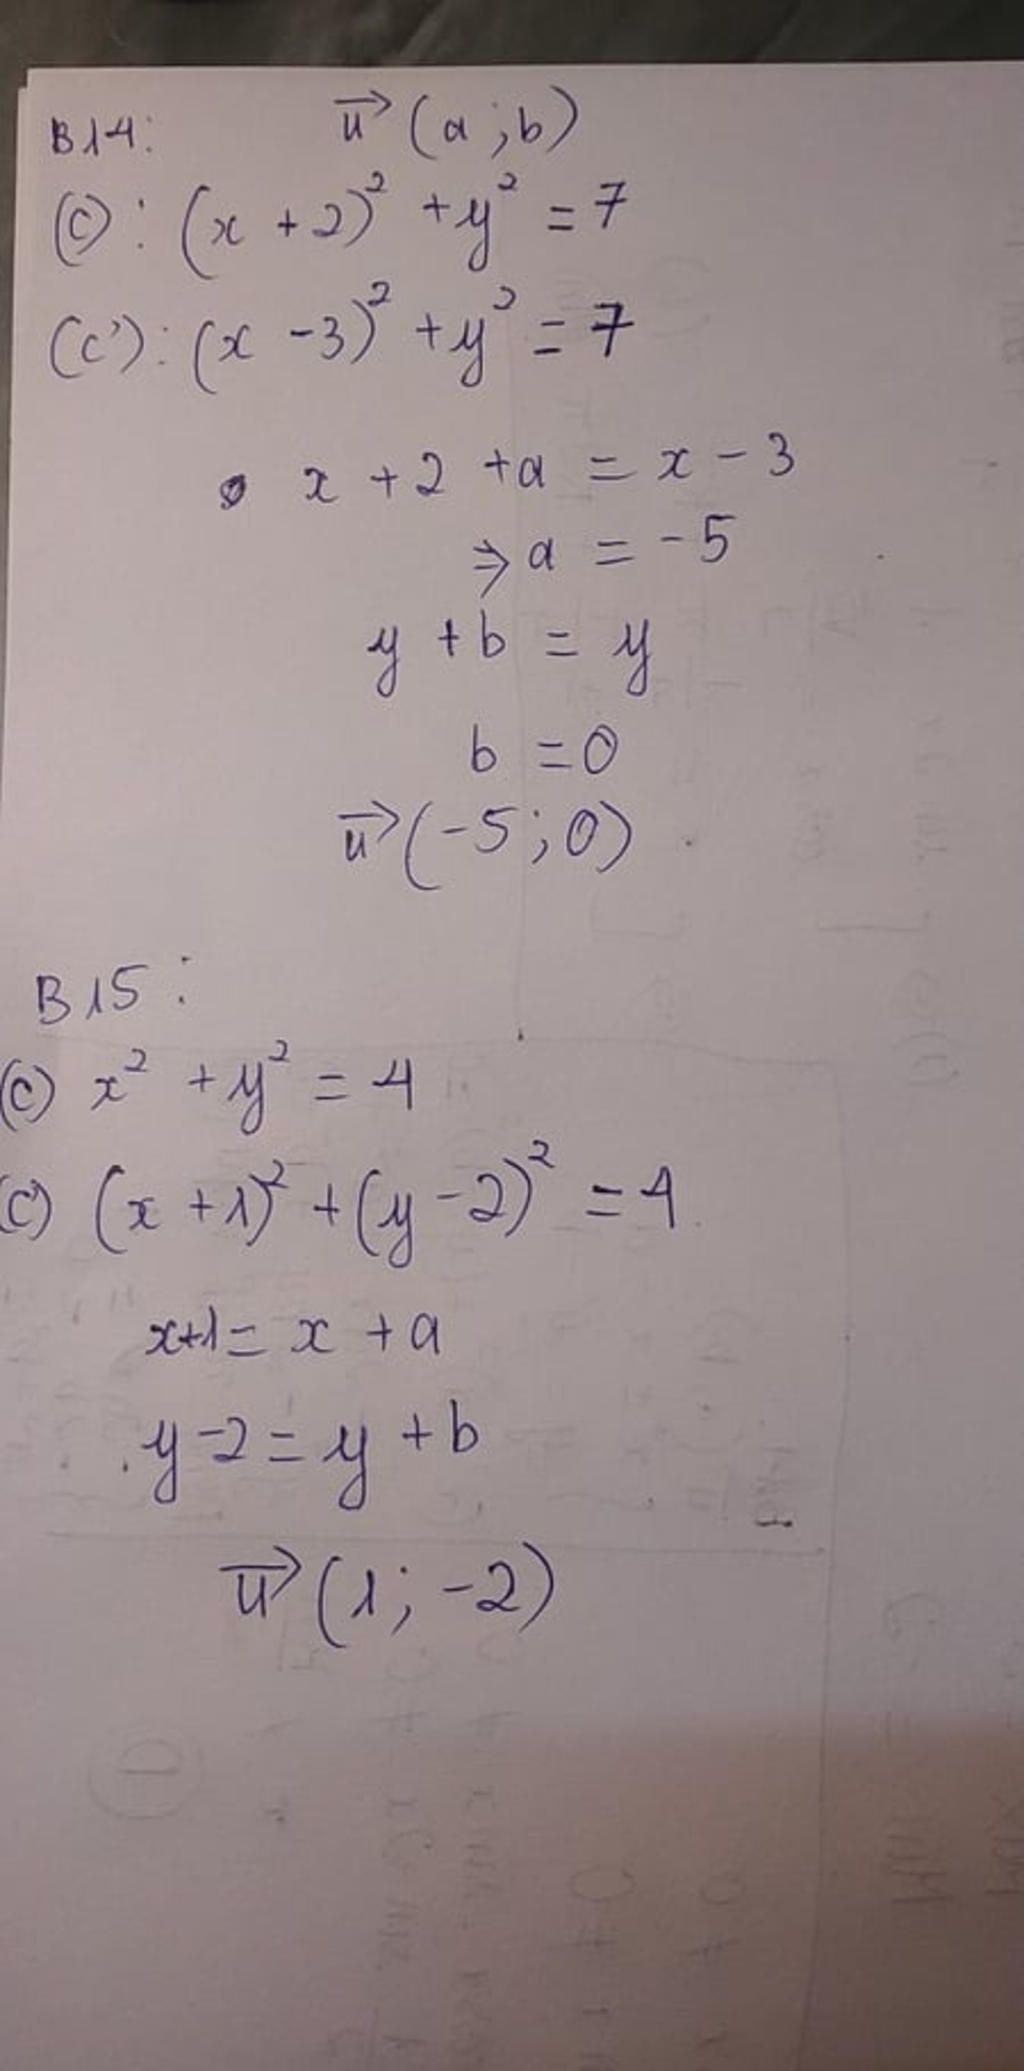 B14: u⃗ (a ; b)
(C) : (x + 2)² + y² = 7
(C') : (x - 3)² + y² = 7
• x + 2 + a = x - 3
⇒ a = -5
y + b = y
b = 0
u⃗ (-5 ; 0)
B15 :
(C) x² + y² = 4
(C') (x + 1)² + (y - 2)² = 4
x+1 = x + a
y - 2 = y + b
u⃗ (1 ; -2)